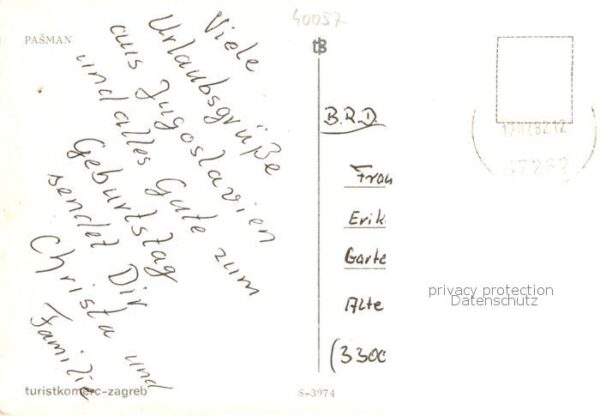 40057
PAŠMAN
Viele
Urlaubsgrüße
aus Jugoslavien
und alles Gute zum
Geburtstag
sendet Dir
Christa und
Familie
B.R.D.
Frau
Erik
Garte
Alte
(3300
privacy protection
Datenschutz
turistkomerc-zagreb
S-3974